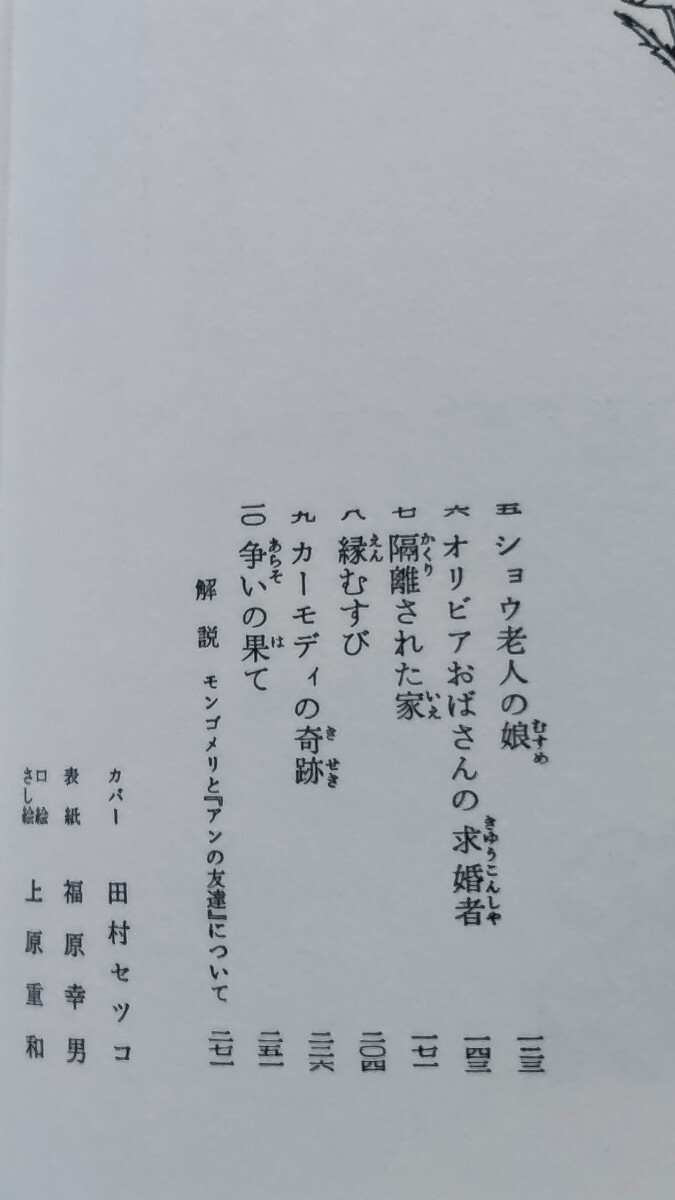 五 ショウ老人の娘 むすめ 一二三
六 オリビアおばさんの求婚者 きゆうこんしや 一四三
七 隔離された家 かくり いえ 一七一
八 縁むすび えん 二〇四
九 カーモディの奇跡 き せき 二三六
一〇 争いの果て あらそ は 二五一
解説 モンゴメリと『アンの友達』について 二七一
カバー 田村セツコ
表紙 福原幸男
口絵 さし絵 上原重和